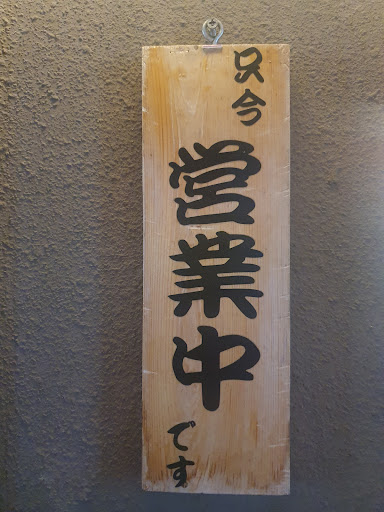 只今
営業中
です